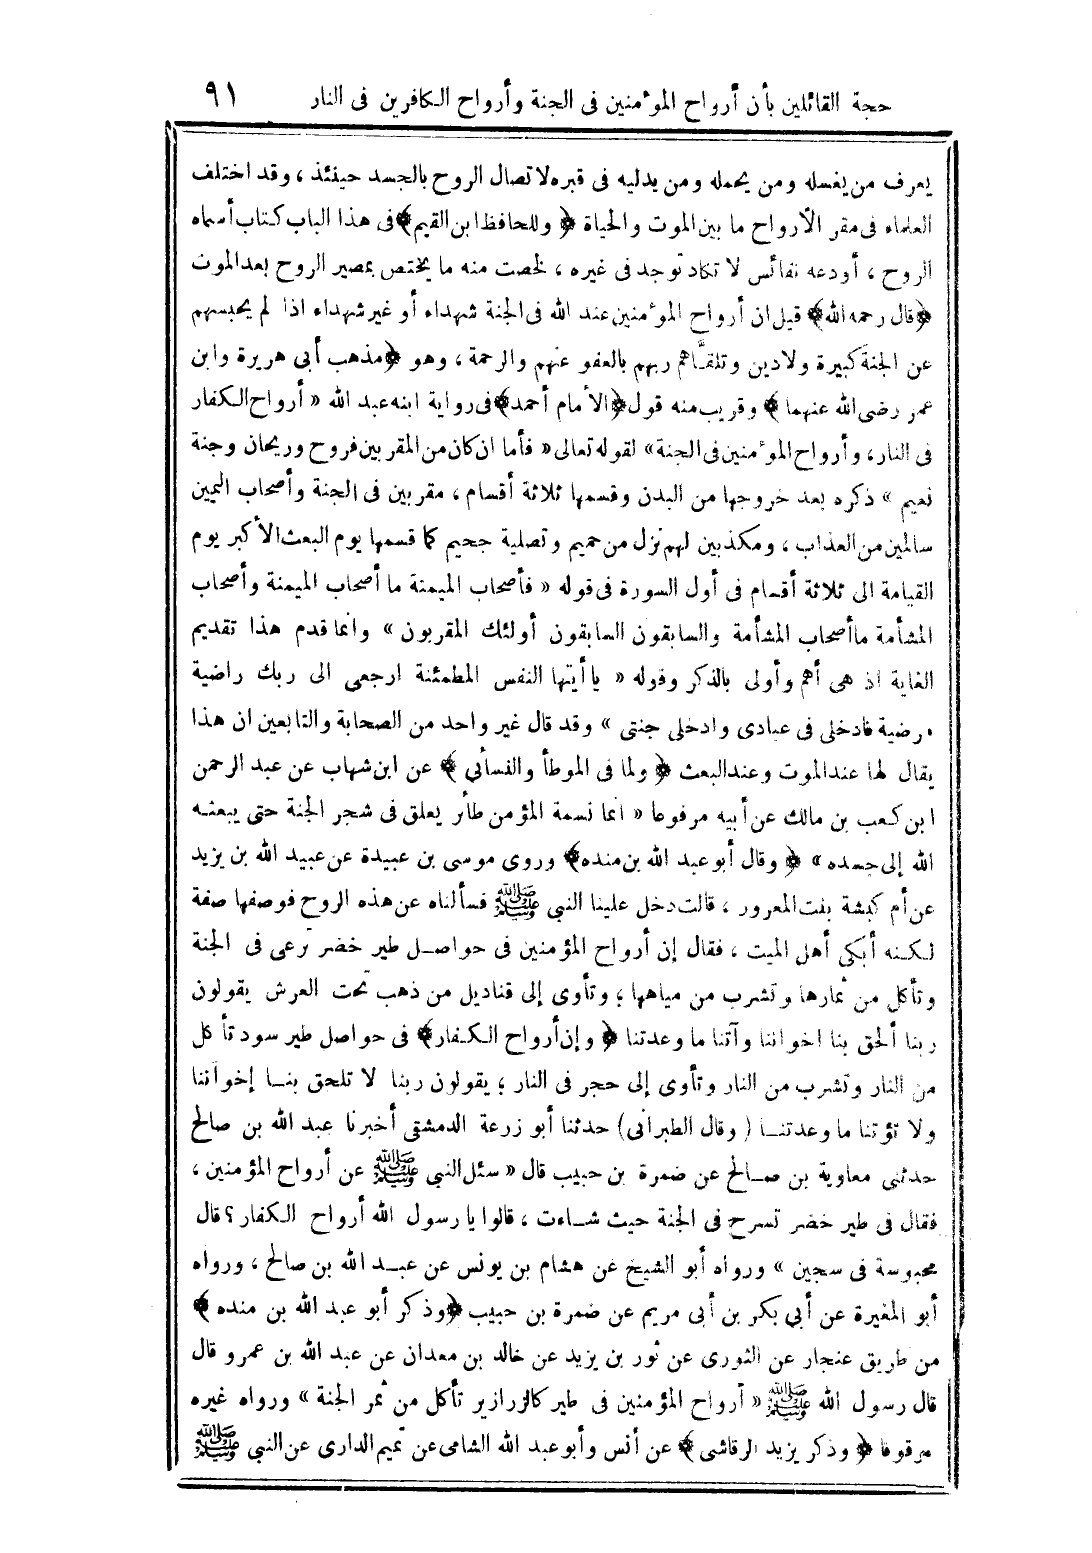 حجة القائلين بأن أرواح المؤمنين فى الجنة وأرواح الكافرين فى النار ٩١
يعرف من يغسله ومن يحمله ومن يدليه فى قبره لاتصال الروح بالجسد حينئذ ، وقد اختلف
العلماء فى مقر الأرواح ما بين الموت والحياة ﴿ وللحافظ ابن القيم ﴾ فى هذا الباب كتاب أسماه
الروح ، أودعه نفائس لا تكاد توجد فى غيره ، لخصت منه ما يختص بمصير الروح بعد الموت
﴿ قال رحمه الله ﴾ قيل ان أرواح المؤمنين عند الله فى الجنة شهداء أو غير شهداء اذا لم يحبسهم
عن الجنة كبيرة ولادين وتلقَّاهم ربهم بالعفو عنهم والرحمة ، وهو ﴿ مذهب أبى هريرة وابن
عمر رضى الله عنهما ﴾ وقريب منه قول ﴿ الأمام أحمد ﴾ فى رواية ابنه عبد الله « أرواح الكفار
فى النار ، وأرواح المؤمنين فى الجنة » لقوله تعالى « فأما ان كان من المقربين فروح وريحان وجنة
نعيم » ذكره بعد خروجها من البدن وقسمها ثلاثة أقسام ، مقربين فى الجنة وأصحاب اليمين
سالمين من العذاب ، ومكذبين لهم نزل من حميم وتصلية جحيم كما قسمها يوم البعث الأكبر يوم
القيامة الى ثلاثة أقسام فى أول السورة فى قوله « فأصحاب الميمنة ما أصحاب الميمنة وأصحاب
المشأمة ما أصحاب المشأمة والسابقون السابقون أولئك المقربون » وانما قدم هذا تقديم
الغاية اذ هى أهم وأولى بالذكر وقوله « يا أيتها النفس المطمئنة ارجعى الى ربك راضية
مرضية فادخلى فى عبادى وادخلى جنتى » وقد قال غير واحد من الصحابة والتابعين ان هذا
يقال لها عند الموت وعند البعث ﴿ ولما فى الموطأ والنسأئى ﴾ عن ابن شهاب عن عبد الرحمن
ابن كعب بن مالك عن أبيه مرفوعا « انما نسمة المؤمن طائر يعلق فى شجر الجنة حتى يبعثه
الله إلى جسده » ﴿ وقال أبو عبد الله بن منده ﴾ وروى موسى بن عبيدة عن عبيد الله بن يزيد
عن أم كبشة بنت المعرور ، قالت دخل علينا النبى ﷺ فسألناه عن هذه الروح فوصفها صفة
لكنه أبكى أهل الميت ، فقال إن أرواح المؤمنين فى حواصل طير خضر ترعى فى الجنة
وتأكل من ثمارها وتشرب من مياهها ؛ وتأوى إلى قناديل من ذهب تحت العرش يقولون
ربنا ألحق بنا اخواننا وآتنا ما وعدتنا ﴿ وإن أرواح الكفار ﴾ فى حواصل طير سود تأكل
من النار وتشرب من النار وتأوى إلى حجر فى النار ؛ يقولون ربنا لا تلحق بنا إخواننا
ولا تؤتنا ما وعدتنا ( وقال الطبرانى ) حدثنا أبو زرعة الدمشقى أخبرنا عبد الله بن صالح
حدثنى معاوية بن صالح عن ضمرة بن حبيب قال « سئل النبى ﷺ عن أرواح المؤمنين ،
فقال فى طير خضر تسرح فى الجنة حيث شاءت ، قالوا يا رسول الله أرواح الكفار ؟ قال
محبوسة فى سجين » ورواه أبو الشيخ عن هشام بن يونس عن عبد الله بن صالح ، ورواه
أبو المغيرة عن أبى بكر بن أبى مريم عن ضمرة بن حبيب ﴿ وذكر أبو عبد الله بن منده ﴾
من طريق عنجار عن الثورى عن ثور بن يزيد عن خالد بن معدان عن عبد الله بن عمرو قال
قال رسول الله ﷺ « أرواح المؤمنين فى طير كالزرازير تأكل من ثمر الجنة » ورواه غيره
موقوفا ﴿ وذكر يزيد الرقاشى ﴾ عن أنس وأبو عبد الله الشامى عن تميم الدارى عن النبى ﷺ